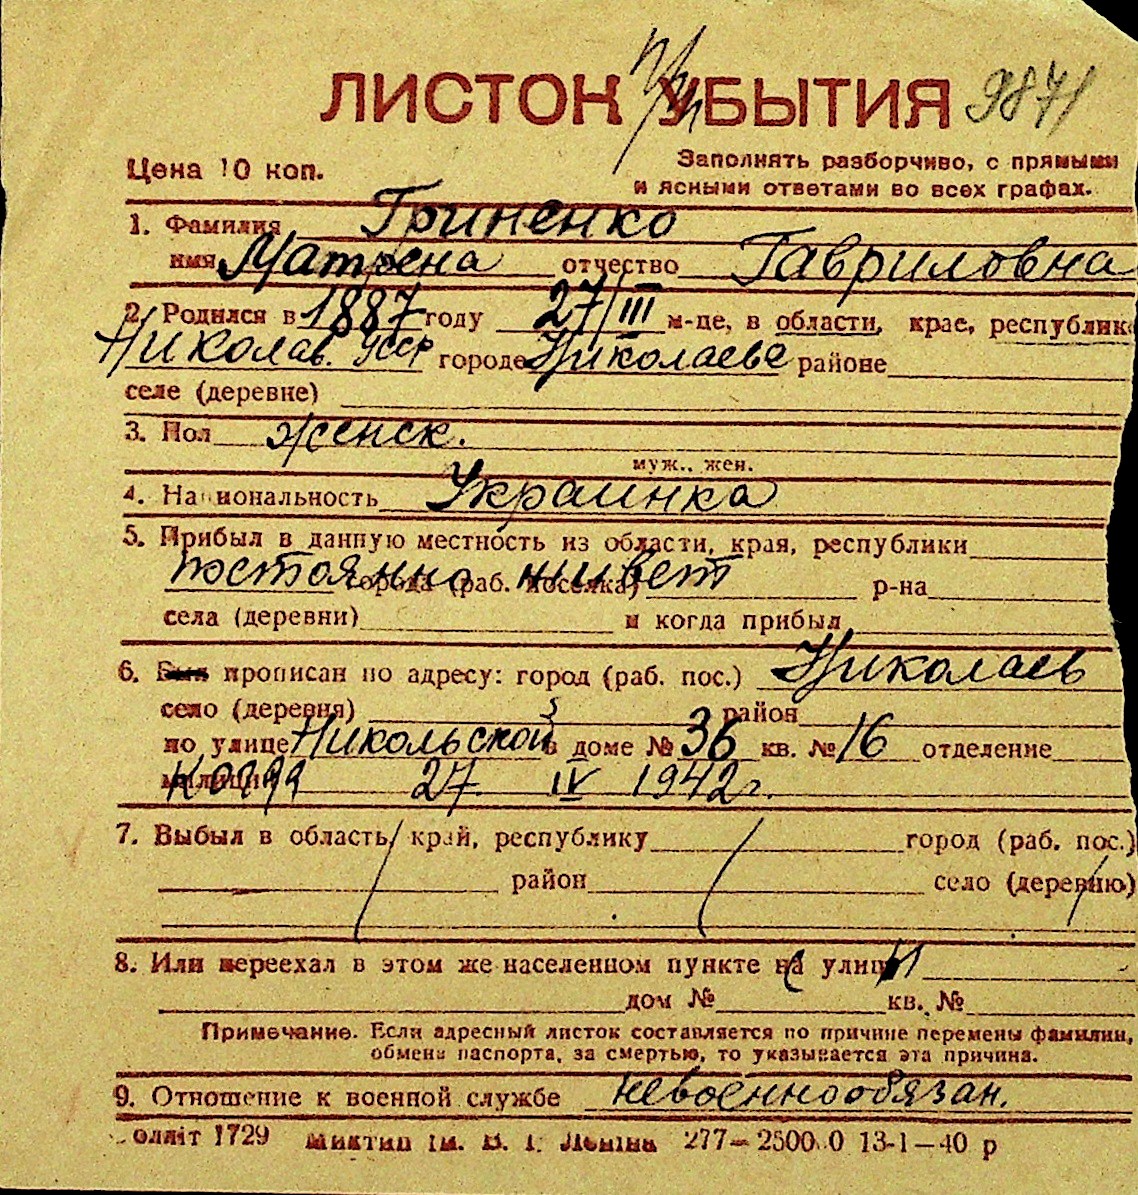 ЛИСТОК УБЫТИЯ 9871
Цена 10 коп.
Заполнять разборчиво, с прямыми
и ясными ответами во всех графах.
1. Фамилия Гриненко
имя Матрена отчество Гавриловна
2. Родился в 1887 году 27/III м-це, в области, крае, республике
Николав. УССР городе Николаеве районе
селе (деревне)
3. Пол женск.
муж., жен.
4. Национальность Украинка
5. Прибыл в данную местность из области, края, республики
постоянно живет города (раб. поселка) р-на
села (деревни) и когда прибыл
6. Был прописан по адресу: город (раб. пос.) Николаев
село (деревня) район
по улице 5 Никольской в доме № 36 кв. № 16 отделение
милиции 27 IV 1942 г.
7. Выбыл в область, край, республику город (раб. пос.)
район село (деревню)
8. Или переехал в этом же населенном пункте на улицу
дом № кв. №
Примечание. Если адресный листок составляется по причине перемены фамилии,
обмена паспорта, за смертью, то указывается эта причина.
9. Отношение к военной службе невоеннообязан.
1729 277—2500.0 13-1—40 р